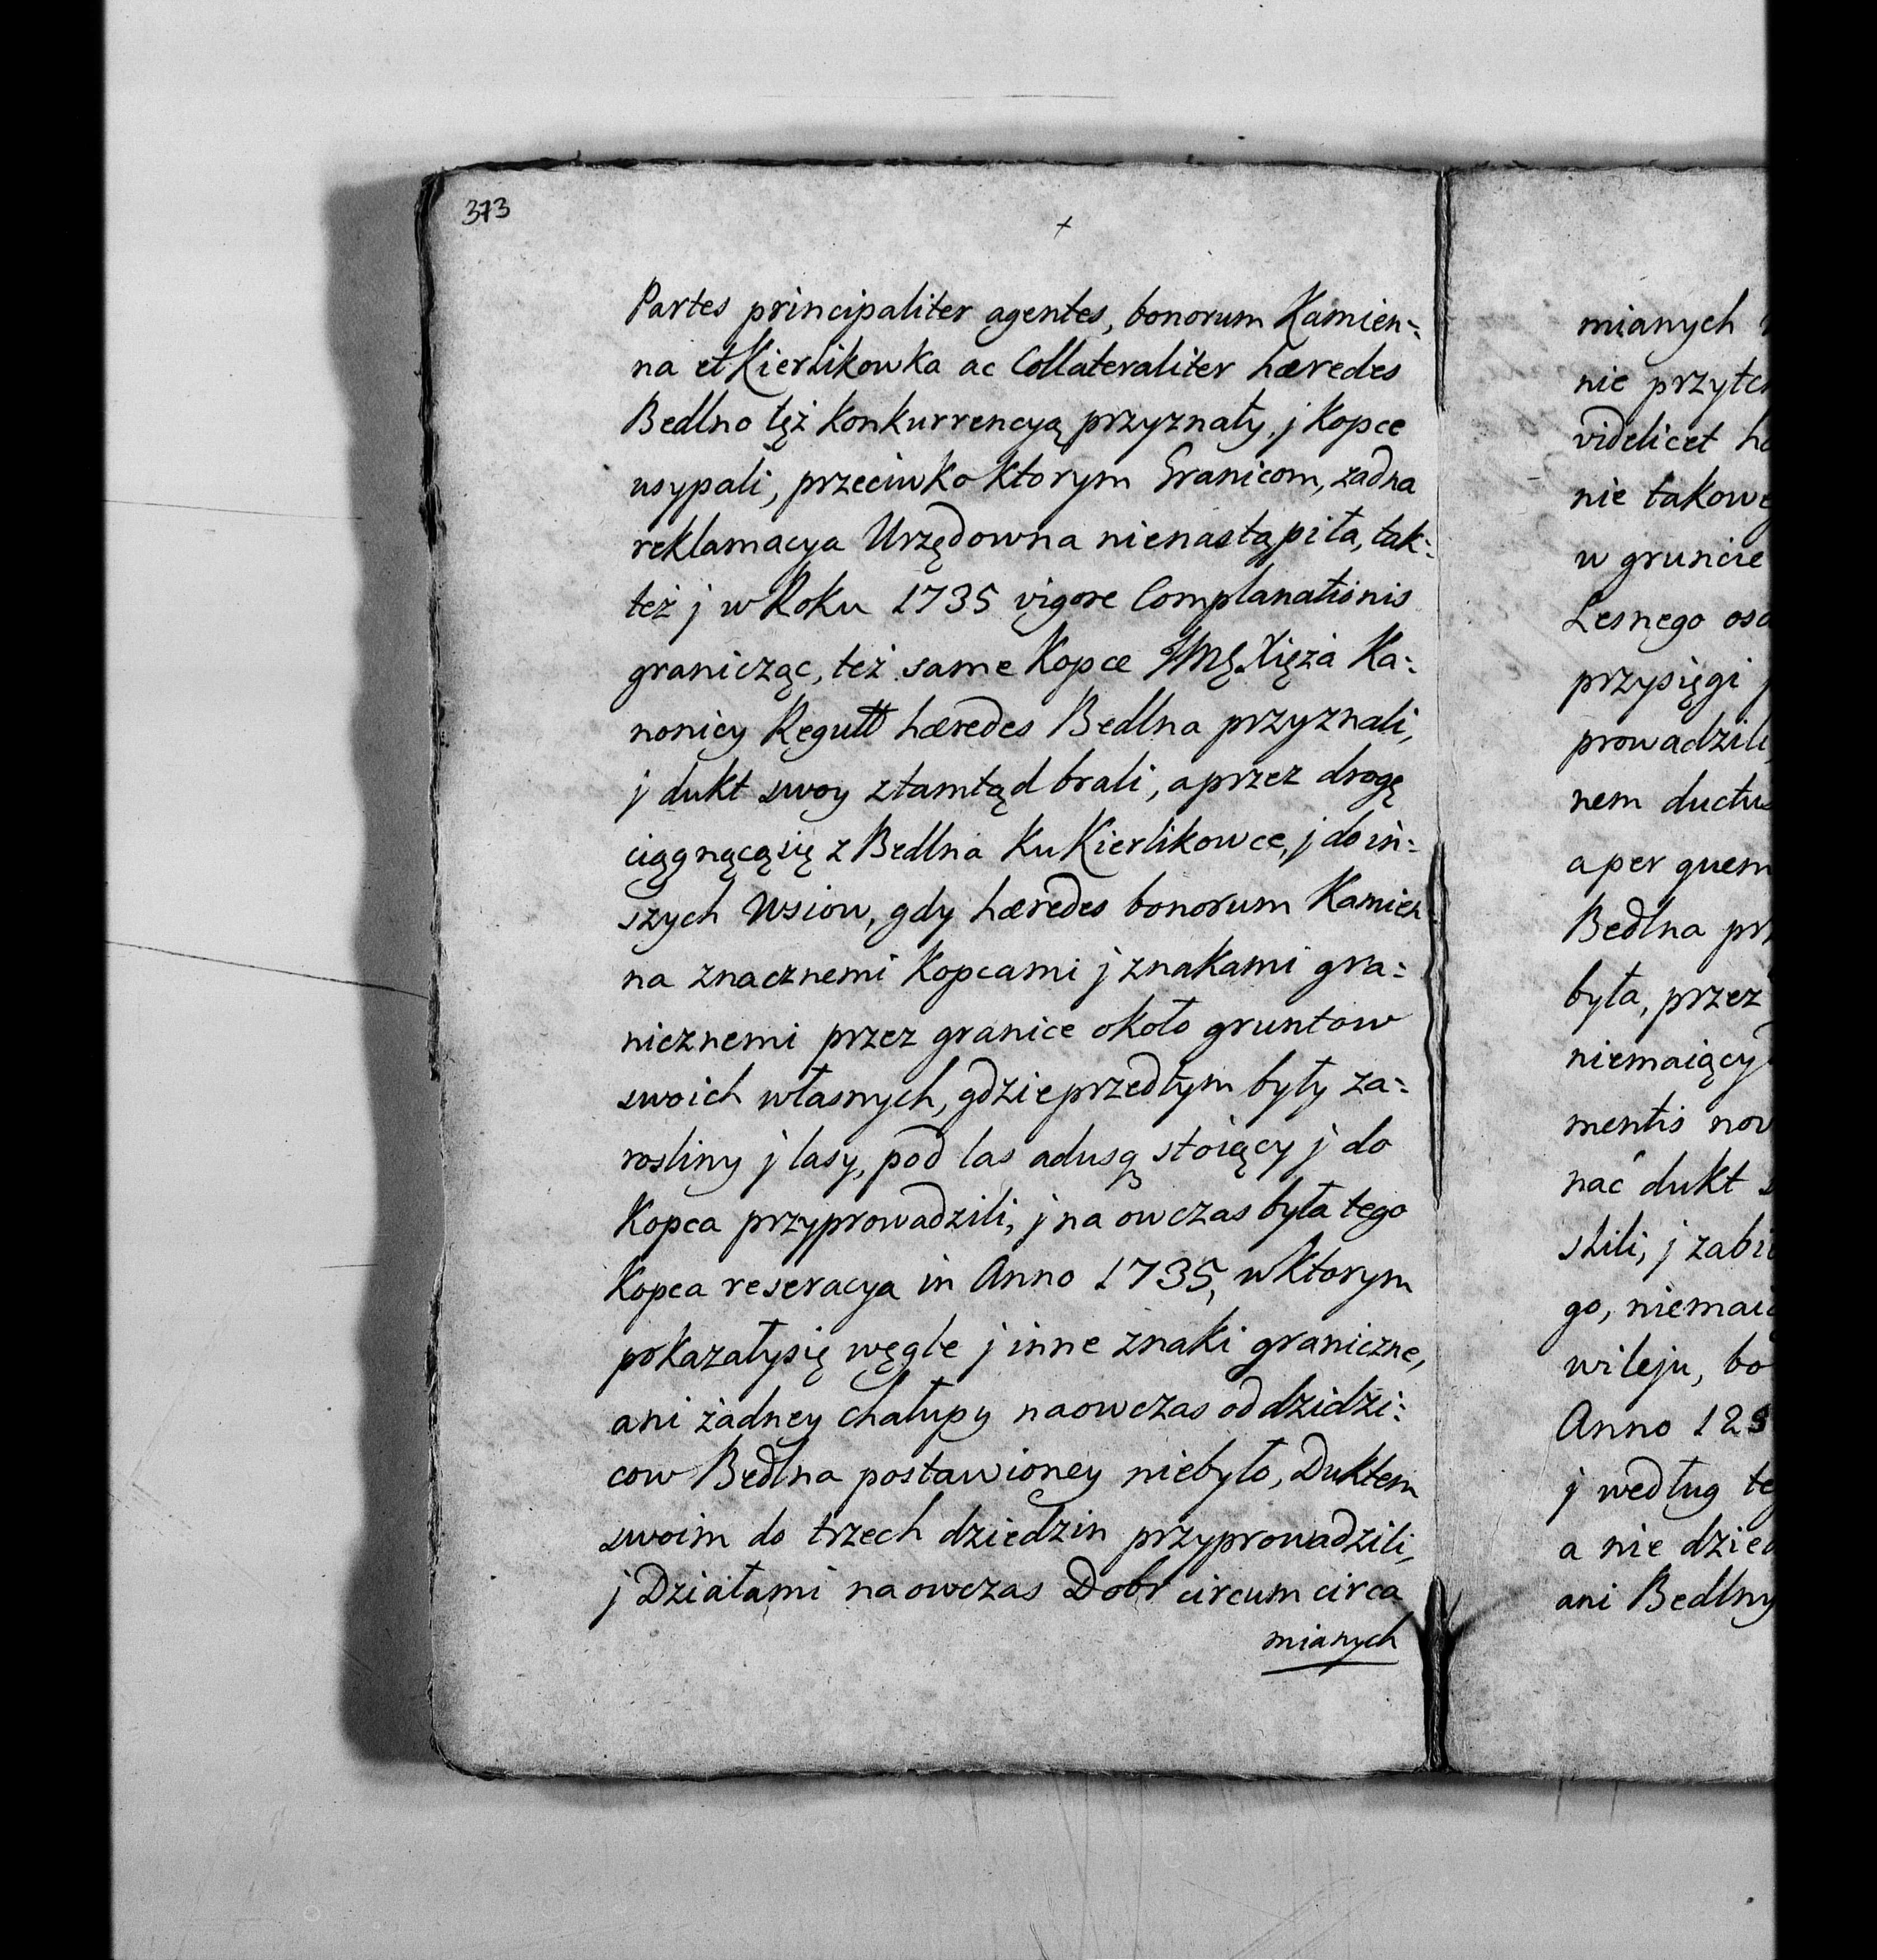 373
+
Partes principaliter agentes, bonorum Kamien=
na et Kierlikowka ac Collateraliter hæredes
Bedlno tęż konkurrencyą przyznały, j kopce
usypali, przeciwko ktorym Granicom, zadna
reklamacya Urzędowna nienastąpiła, tak=
też j w Roku 1735 vigore Complanationis
granicząc, też same Kopce JMĘ Xięża Ka=
nonicy Regull hæredes Bedlna przyznali,
j dukt swoy ztamtąd brali, a przez drogę
ciągnącąsię z Bedlna Ku Kierlikowce, j do in=
szych Wsiow, gdy hæredes bonorum Kamien=
na znacznemi Kopcami j znakami gra=
nicznemi przez granice około gruntow
swoich własnych, gdzieprzedtym były za=
rosliny j lasy, pod las adusą stoięcy j do
Kopca przyprowadzili, j na owczas była tego
Kopca reseracya in Anno 1735, w ktorym
pokazałysię węgle j inne znaki graniczne,
ani żadney chałupy naowczas od dzidzi=
cow Bedlna postawioney niebyło, Duktem
swoim do trzech dziedzin przyprowadzili,
j Działami naowczas Dobr circum circa
mianych
mianych
nie przytc
videlicet hæ
nie takowe
w gruncie
Lesnego osa
przysięgi
prowadzili,
nem ductus
a per quem
Bedlna prz
była, przez
niemaiący
mentis nov
nać dukt
slili, j zabie
go, niemaią
wileju, bo
Anno 12
j według te
a nie dzied
ani Bedlny